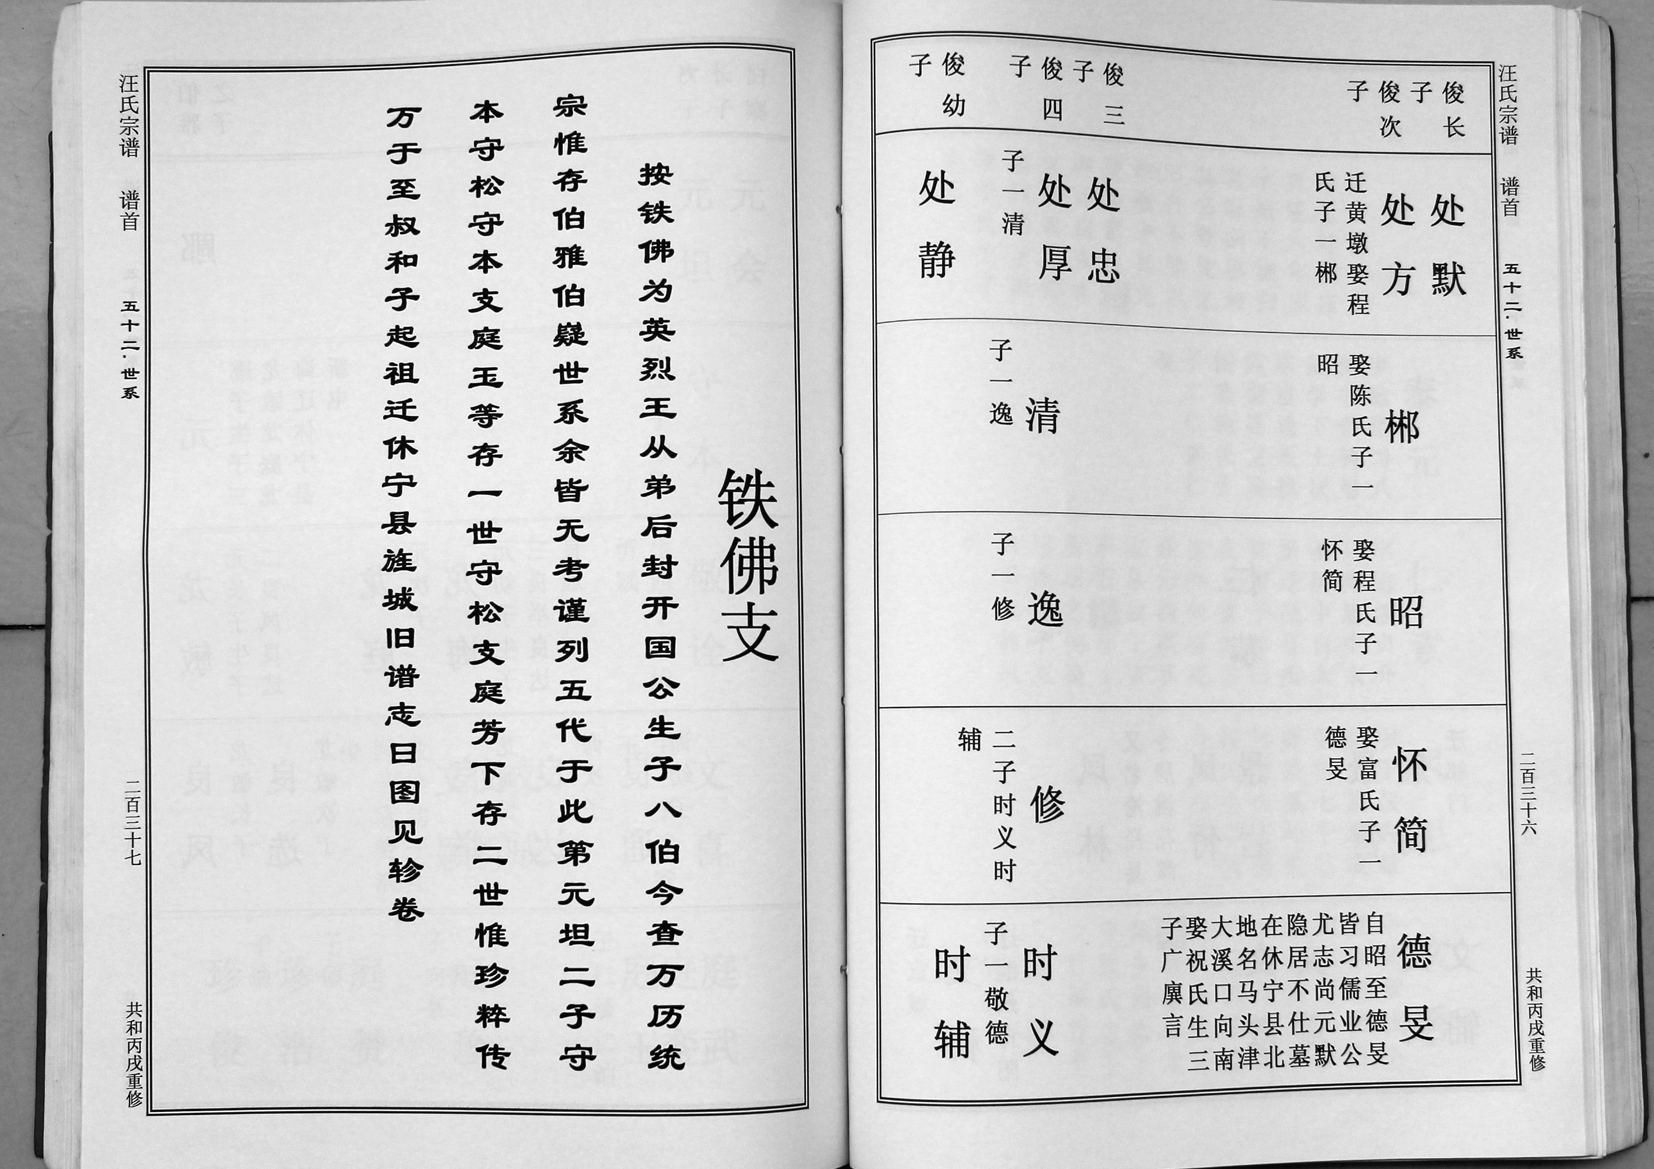 汪氏宗谱 谱首 五十二·世系 二百三十六 共和丙戌重修
俊长
子
俊次
子
俊三
子
俊四
子
俊幼
子
处默
处方
迁黄墩娶程
氏子一郴
处忠
处厚
子一清
处静
郴
娶陈氏子一
昭
清
子一逸
昭
娶程氏子一
怀简
逸
子一修
怀简
娶富氏子一
德旻
修
二子时义时
辅
德旻
自昭至德旻
皆习儒业公
尤志尚元默
隐居不仕墓
在休宁县北
地名马头津
大溪口向南
娶祝氏生三
子广廙言
时义
子一敬德
时辅
铁佛支
按铁佛为英烈王从弟后封开国公生子八伯今查万历统
宗惟存伯雅伯疑世系余皆无考谨列五代于此第元坦二子守
本守松守本支庭玉等存一世守松支庭芳下存二世惟珍粹传
万于至叔和子起祖迁休宁县旌城旧谱志日图见轸卷
汪氏宗谱 谱首 五十二·世系 二百三十七 共和丙戌重修